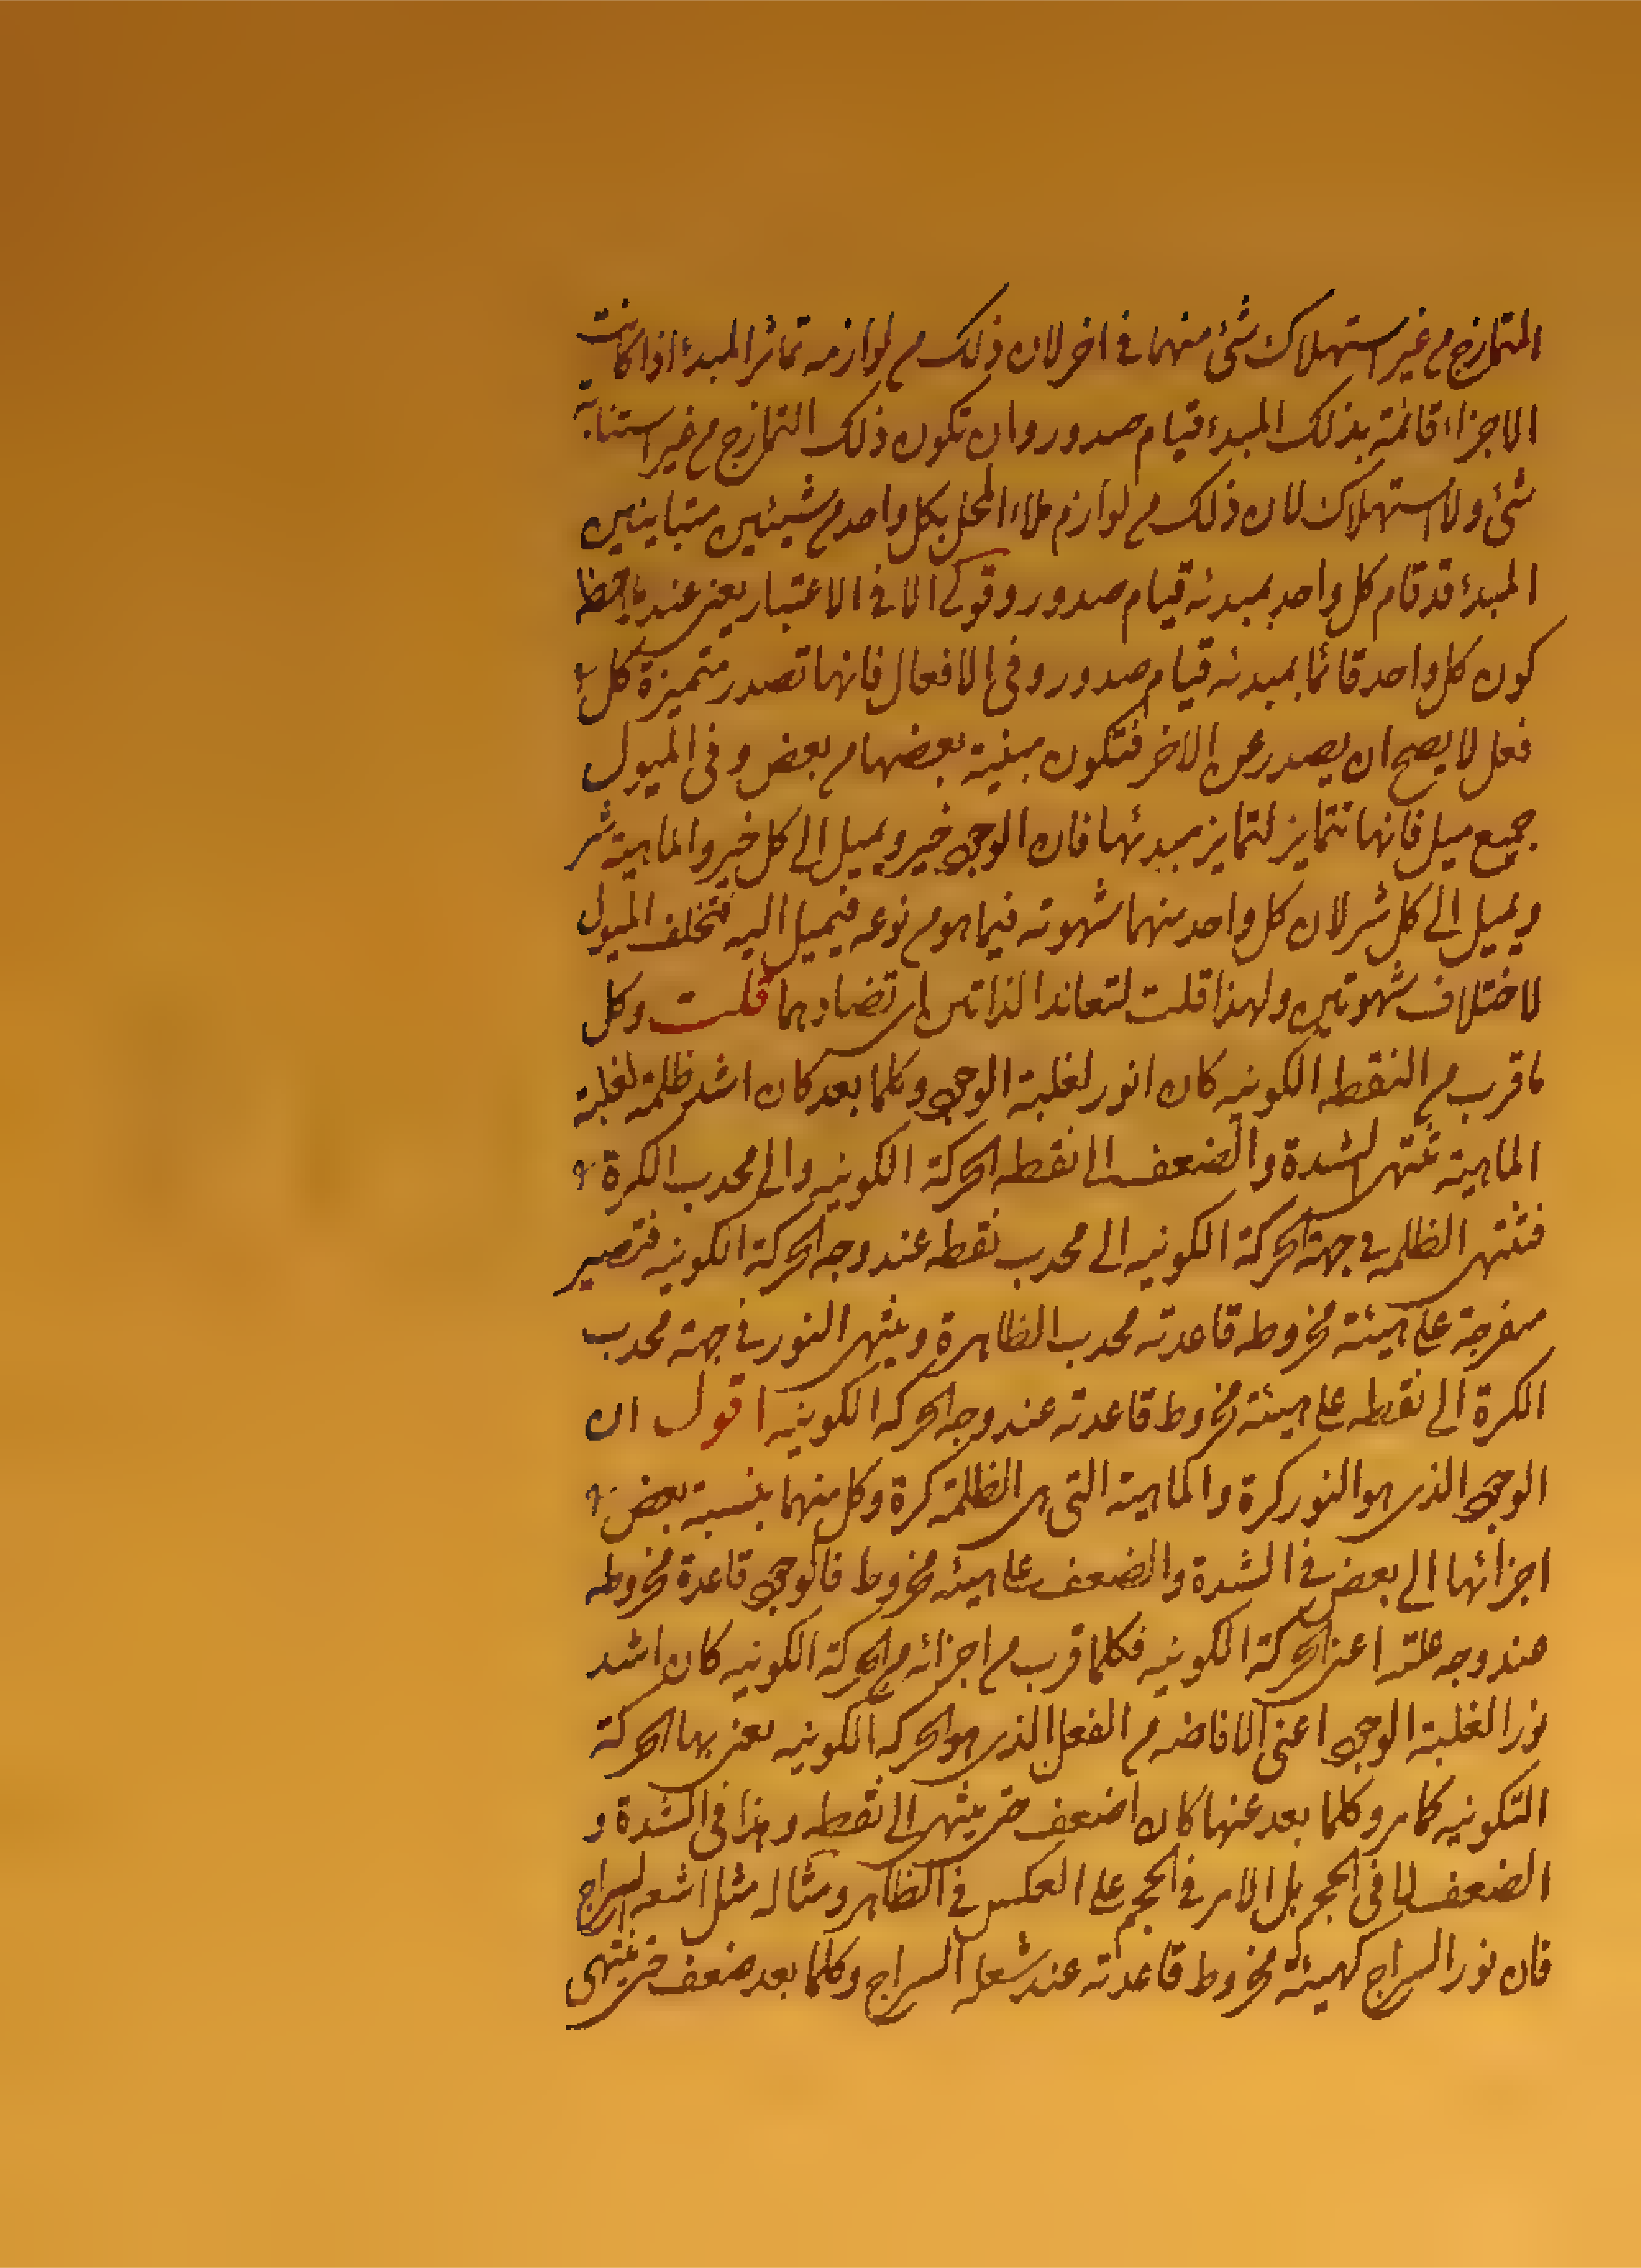 المتمازج من غير استهلاك شئ منهما فی اخر لان ذلك من لوازمه تمائز المبدء اذا كانت
الاجزاء قائمة بذلك المبدء قيام صدور وان تكون ذلك التمازج من غير استنابة
شئ ولا استهلاك لان ذلك من لوازم ملاء المحل بكل واحد من شيئين متباينين
المبدء قد قام كل واحد بمبدئه قيام صدور وقولی الا فی الاعتبار يعنی عند ملاحظة
كون كل واحد قائما بمبدئه قيام صدور وفی الافعال فانها تصدر متميزة كل
فعل لا يصح ان يصدر عن الاخر فتكون مبنية بعضها من بعض وفی الميول
جميع ميل فانها تتمايز لتمايز مبدئها فان الوجود خير ويميل الی كل خير والماهية شر
ويميل الی كل شر لان كل واحد منهما شهوته فيما هو من نوعه فيميل اليه فتختلف الميول
لاختلاف شهوتين ولهذا قلت لتعاند الذاتين ای تضادهما قلت وكل
ما قرب من النقطه الكونيه كان انور لغلبة الوجود وكلما بعد كان اشد ظلمة لغلبة
الماهية تنتهی الشدة والضعف الی نقطه الحركة الكونيه والی محدب الكرة
فتنتهی الظلمه فی جهة الحركة الكونيه الی محدب نقطه عند وجه الحركة الكونيه فتصير
منفرجة علی هيئة مخروطه قاعدته محدب الظاهرة وينتهی النور فی جهة محدب
الكرة الی نقطه علی هيئة مخروط قاعدته عند وجه الحركه الكونيه اقول ان
الوجود الذی هو النور كرة والماهية التی هی الظلمة كرة وكل منهما بنسبة بعض
اجزائها الی بعض فی الشدة والضعف علی هيئه مخروط فالوجود قاعدة مخروطه
عند وجه علته اعنی الحركة الكونيه فكلما قرب من اجزائه من الحركة الكونيه كان اشد
نورا لغلبة الوجود اعنی الافاضه من الفعل الذی هو الحركه الكونيه يعنی بها الحركة
التكونيه كما مر وكلما بعد عنها كان اضعف حتی ينتهی الی نقطه وهذا فی الشدة و
الضعف لا فی الحجم بل الامر فی الحجم علی العكس فی الظاهر ومثاله مثل اشعه السراج
فان نور السراج كهيئة مخروط قاعدته عند شعلة السراج وكلما بعد ضعف حتی ينتهی